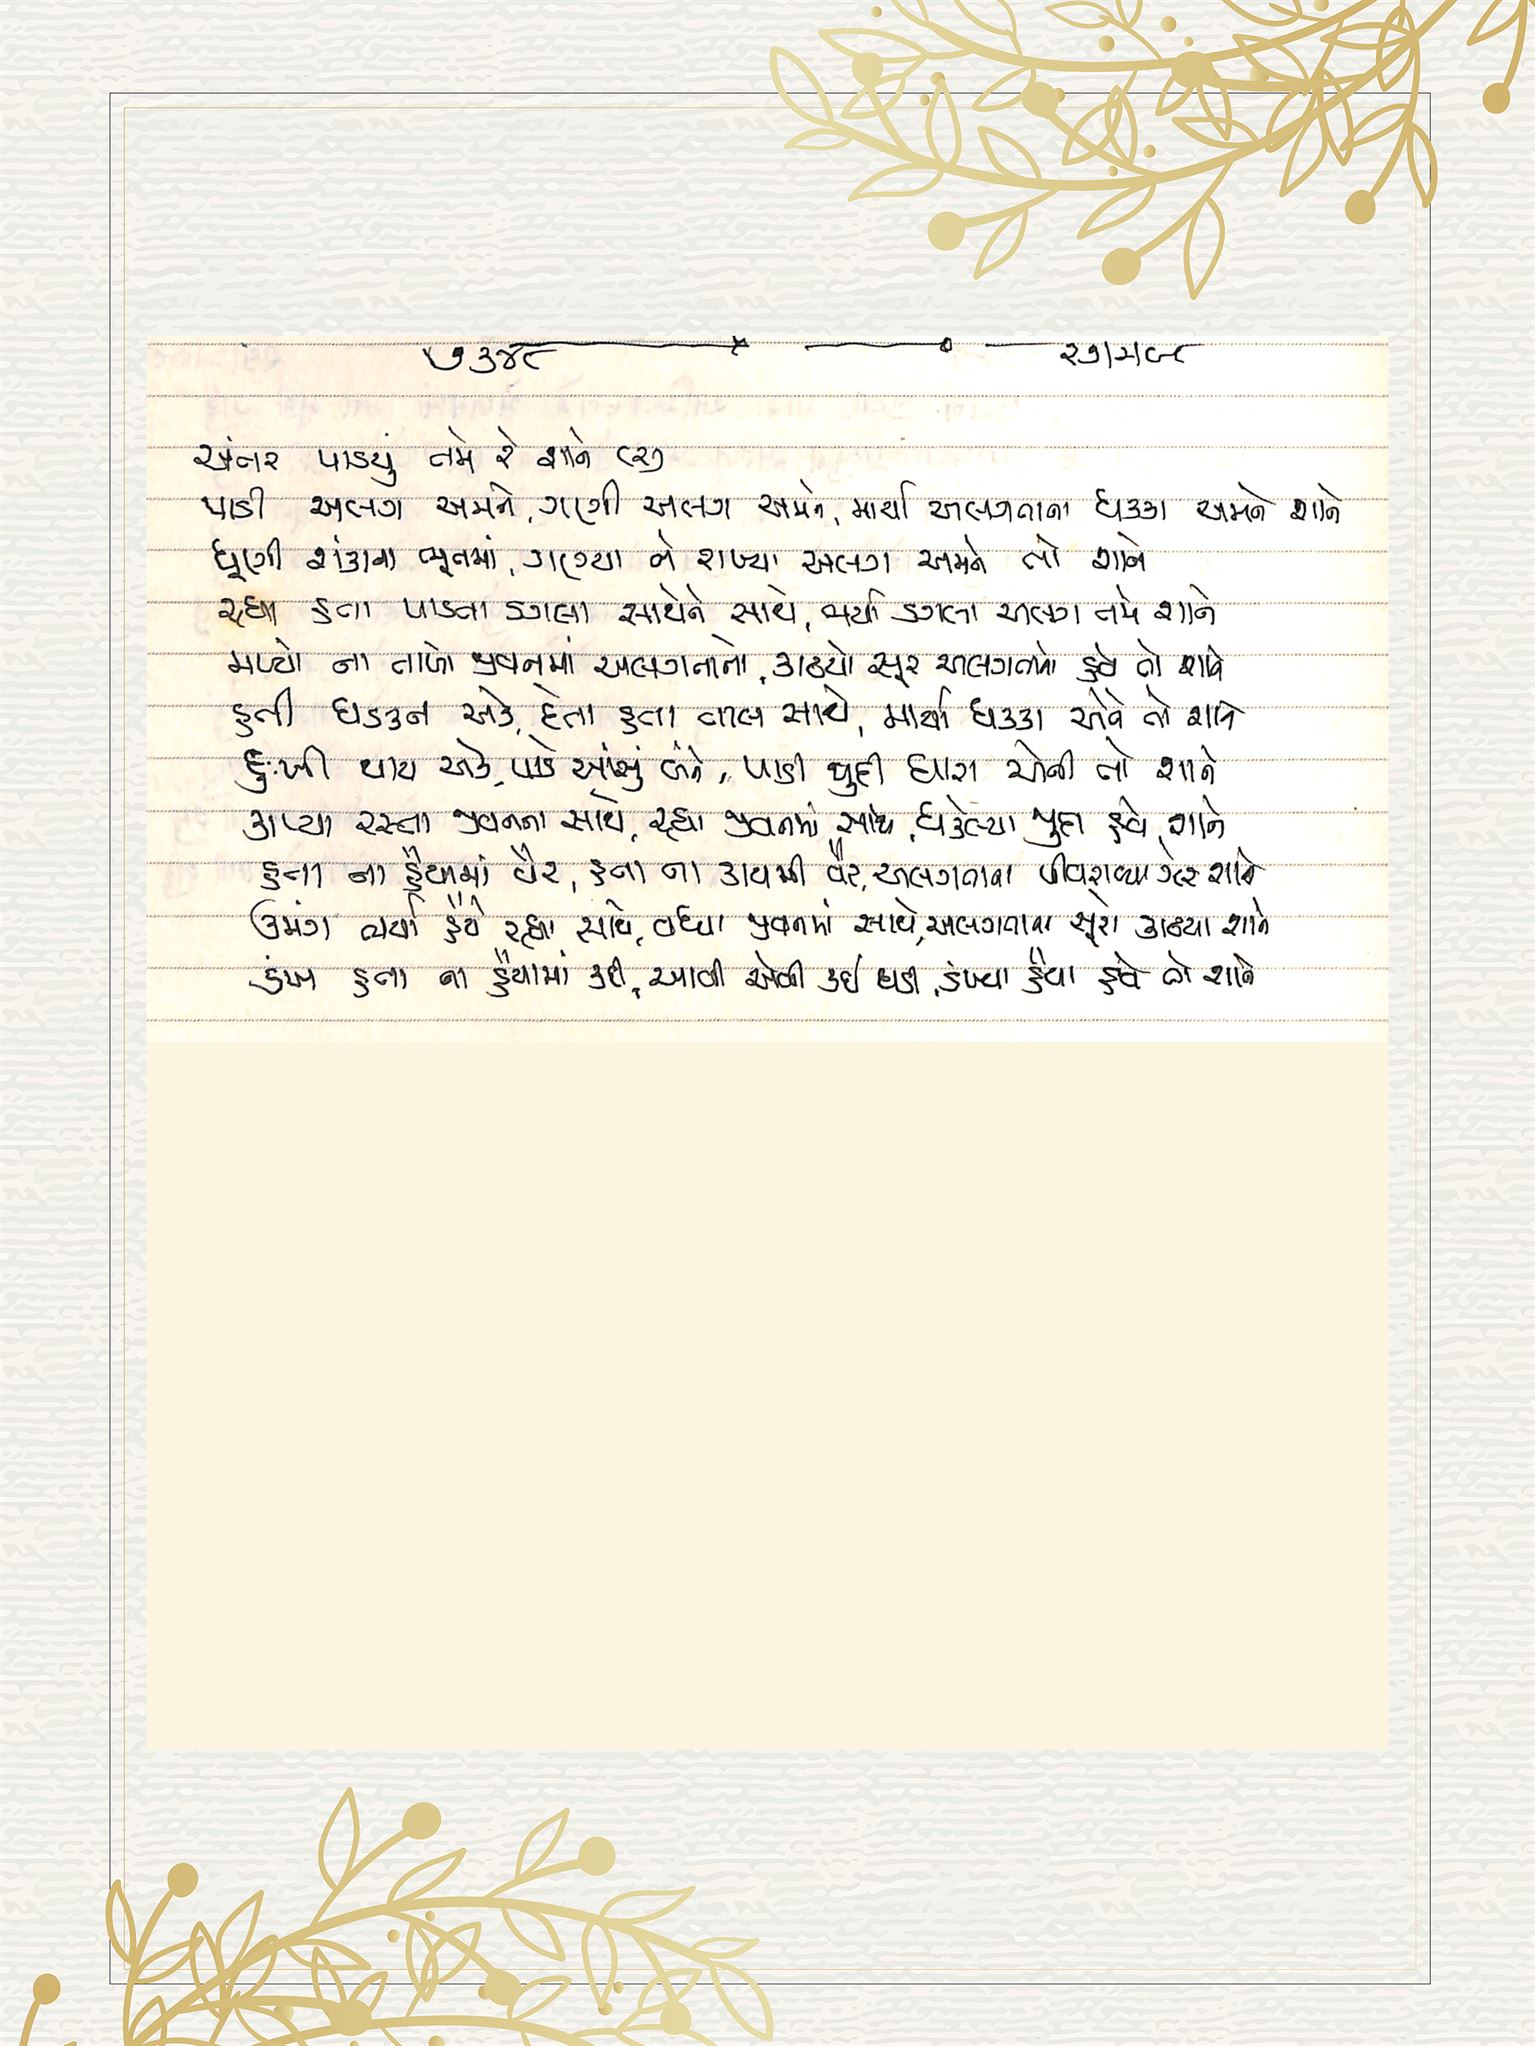 ૭૩૪૮ ૨૭|મ|૯૮
અંતર પાડયું તમે રે શાને (૨)
પાડી અલગ અમને, ગણી અલગ અમને, માર્યા અલગતાના ધક્કા અમને શાને
ધૂણી શંકાના ભૂતમાં, ગણ્યા ને રાખ્યા અલગ અમને તો શાને
રહ્યા હતા પાડતા ડગલા સાથેને સાથે, ભર્યા ડગલા અલગ તમે શાને
મળ્યો ના તાળો જીવનમાં અલગતાનો, કાઢયો સૂર અલગતાનો હવે તો શાને
હતી ધડકન એક, દેતા હતા તાલ સાથે, માર્યા ધક્કા એવે તો શાને
દુઃખી થાય એક, પાડે આંસું બંને, પાડી જુદી ધારા એની તો શાને
કાપ્યા રસ્તા જીવનના સાથે, રહ્યા જીવનમાં સાથે, ધકેલ્યા જુદા હવે શાને
હતા ના હૈયામાં વૈર, હતા ના કાયમી વૈર, અલગતાના પીવરાવ્યા ઝેર શાને
ઉમંગ ભર્યા હૈયે રહ્યા સાથે, વધ્યા જીવનમાં સાથે, અલગતાના સૂરો કાઢયા શાને
ડંખ હતા ના હૈયામાં કદી, આવી એવી કઈ ઘડી, ડંખ્યા હૈયા હવે તો શાને